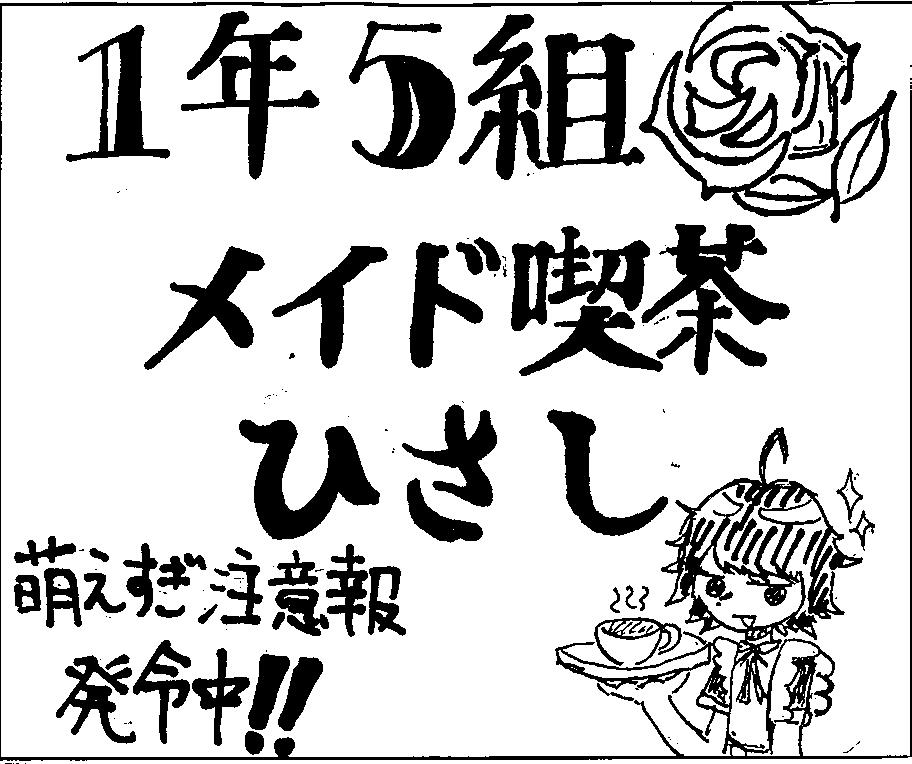 1年5組
メイド喫茶
ひさし
萌えすぎ注意報
発令中!!